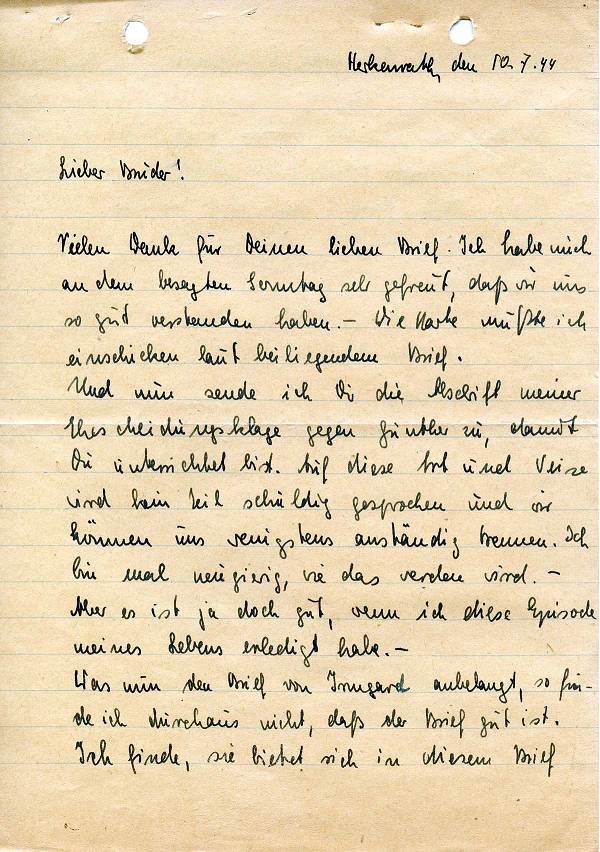 Herkenrath, den 10.7.44
Lieber Bruder!
Vielen Dank für Deinen lieben Brief. Ich habe mich
an dem besagten Sonntag sehr gefreut, daß wir uns
so gut verstanden haben. – Die Karte mußte ich
einschicken laut beiliegendem Brief.
Und nun sende ich Dir die Abschrift meiner
Ehescheidungsklage gegen Günther zu, damit
Du unterrichtet bist. Auf diese Art und Weise
wird kein Teil schuldig gesprochen und wir
können uns wenigstens anständig trennen. Ich
bin mal neugierig, wie das werden wird. –
Aber es ist ja doch gut, wenn ich diese Episode
meines Lebens erledigt habe. –
Was nun den Brief von Irmgard anbelangt, so fin-
de ich durchaus nicht, daß der Brief gut ist.
Ich finde, sie bietet sich in diesem Brief